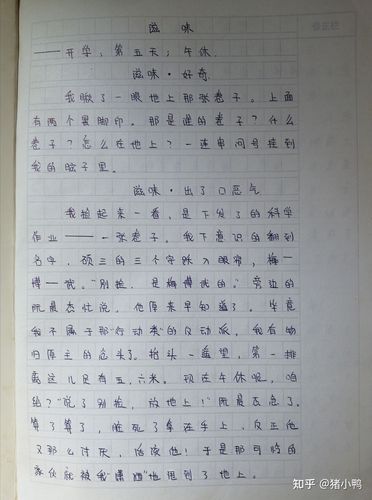 滋 味
——开学;第五天;午休.
滋味·好奇.
我瞅了一眼地上那张卷子。上面
有两个黑脚印。那是谁的卷子?什么
卷子?怎么在地上?一连串问号挂到
我的脑子里。
滋味·出了口恶气
我捡起来一看,是下发了的科学
作业——一张卷子。我下意识的翻到
名字,硕三的三个字跃入眼帘,梅一
博一我。"别捡,是梅博我的。"旁边的
阮晨焘忙说。他原来早知道了。毕竟
我不属于那"行动类"的反动派,我有物
归原主的念头了。抬头一遥望,第一排
离这儿足有五、六米。现在午休呢,咋
给?"说了别捡,放地上!"阮晨焘急了。
算了算了,脏死了拿在手上,反正他
又那么讨厌,活该他!于是那可怜的
家伙就被我"潇洒"地甩到了地上。
知乎 @猪小鸭